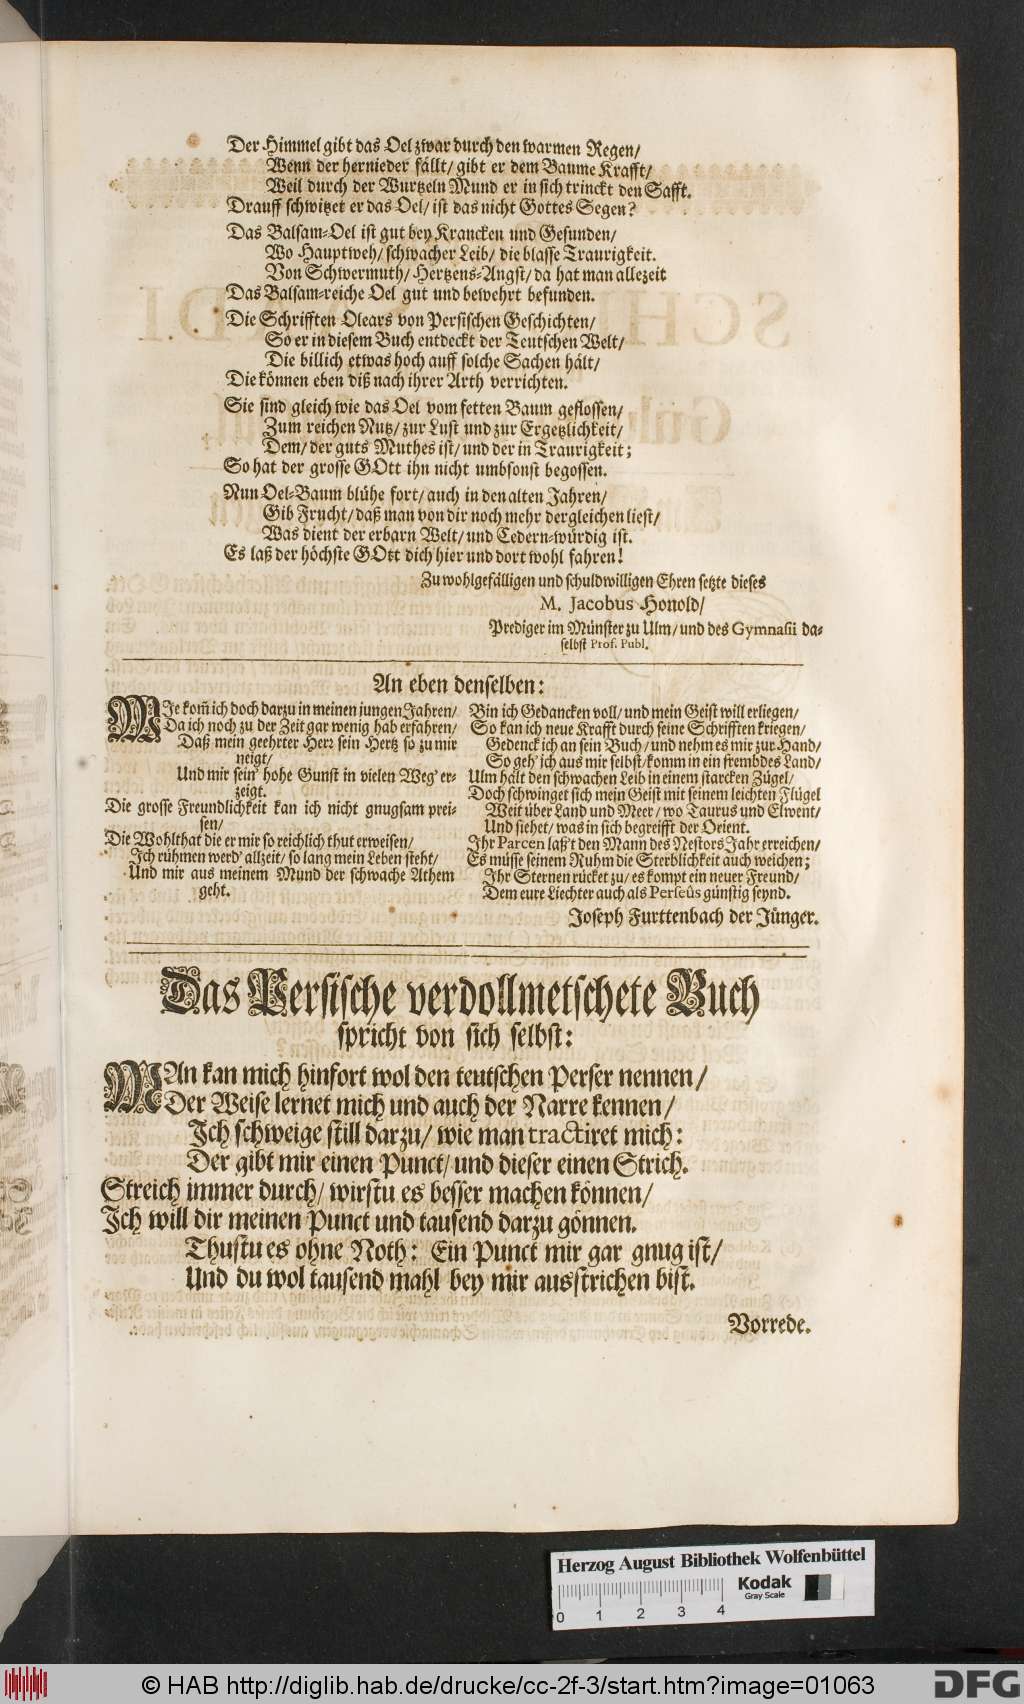 Der Himmel gibt das Oel zwar durch den warmen Regen/
Wenn der hernieder fällt/ gibt er dem Baume Krafft/
Weil durch der Wurtzeln Mund er in sich trinckt den Safft.
Drauff schwitzet er das Oel/ ist das nicht Gottes Segen?
Das Balsam-Oel ist gut bey Krancken und Gesunden/
Wo Hauptweh/ schwacher Leib/ die blasse Traurigkeit.
Von Schwermuth/ Hertzens-Angst/ da hat man allezeit
Das Balsam-reiche Oel gut und bewehrt befunden.
Die Schrifften Olears von Persischen Geschichten/
So er in diesem Buch entdeckt der Teutschen Welt/
Die billich etwas hoch auff solche Sachen hält/
Die können eben diß nach ihrer Arth verrichten.
Sie sind gleich wie das Oel vom fetten Baum geflossen/
Zum reichen Nutz/ zur Lust und zur Ergetzlichkeit/
Dem/ der guts Muthes ist/ und der in Traurigkeit;
So hat der grosse GOtt ihn nicht umbsonst begossen.
Nun Oel-Baum blühe fort/ auch in den alten Jahren/
Gib Frucht/ daß man von dir noch mehr dergleichen liest/
Was dient der erbarn Welt/ und Cedern-würdig ist.
Es laß der höchste GOtt dich hier und dort wohl fahren!
Zu wohlgefälligen und schuldwilligen Ehren setzte dieses
M. Jacobus Honold/
Prediger im Münster zu Ulm/ und des Gymnasii da-
selbst Prof. Publ.
An eben denselben:
WIe kom̃ ich doch darzu in meinen jungen Jahren/
Da ich noch zu der Zeit gar wenig hab erfahren/
Daß mein geehrter Herr sein Hertz so zu mir
neigt/
Und mir sein' hohe Gunst in vielen Weg' er-
zeigt.
Die grosse Freundlichkeit kan ich nicht gnugsam prei-
sen/
Die Wohlthat die er mir so reichlich thut erweisen/
Ich rühmen werd' allzeit/ so lang mein Leben steht/
Und mir aus meinem Mund der schwache Athem
geht.
Bin ich Gedancken voll/ und mein Geist will erliegen/
So kan ich neue Krafft durch seine Schrifften kriegen/
Gedenck ich an sein Buch/ und nehm es mir zur Hand/
So geh' ich aus mir selbst/ komm in ein frembdes Land/
Ulm hält den schwachen Leib in einem starcken Zügel/
Doch schwinget sich mein Geist mit seinem leichten Flügel
Weit über Land und Meer/ wo Taurus und Elwent/
Und siehet/ was in sich begreifft der Orient.
Ihr Parcen laß't den Mann des Nestors Jahr erreichen/
Es müsse seinem Ruhm die Sterblichkeit auch weichen;
Ihr Sternen rücket zu/ es kompt ein neuer Freund/
Dem eure Liechter auch als Perseûs günstig seynd.
Joseph Furttenbach der Jünger.
Das Persische verdollmetschete Buch
spricht von sich selbst:
MAn kan mich hinfort wol den teutschen Perser nennen/
Der Weise lernet mich und auch der Narre kennen/
Ich schweige still darzu/ wie man tractiret mich:
Der gibt mir einen Punct/ und dieser einen Strich.
Streich immer durch/ wirstu es besser machen können/
Ich will dir meinen Punct und tausend darzu gönnen.
Thustu es ohne Noth: Ein Punct mir gar gnug ist/
Und du wol tausend mahl bey mir ausstrichen bist.
Vorrede.
Herzog August Bibliothek Wolfenbüttel
Kodak
Gray Scale
0 1 2 3 4
© HAB http://diglib.hab.de/drucke/cc-2f-3/start.htm?image=01063
DFG